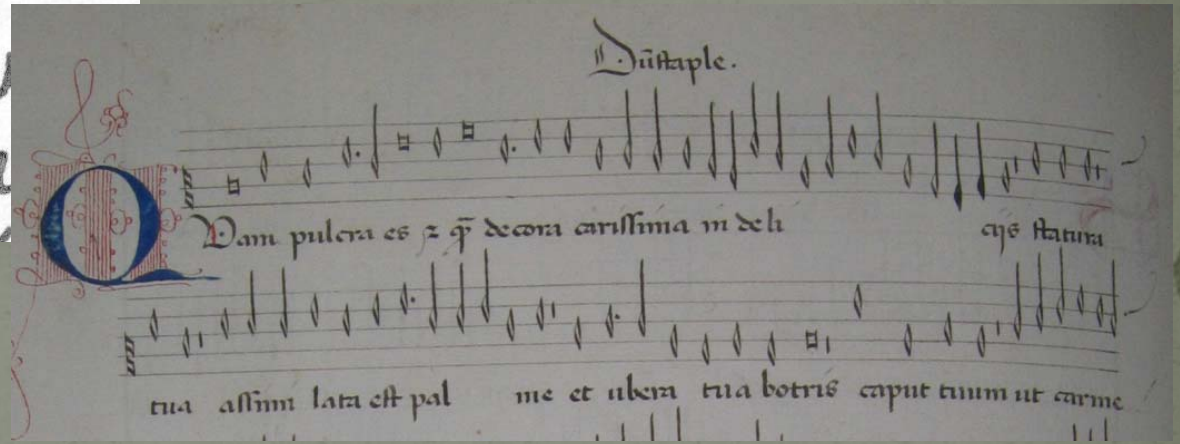 Dūstaple.
Quam pulcra es ⁊ q̄ decora carissima in deli cijs statura
tua assimi lata est pal me et ubera tua botris caput tuum ut carme